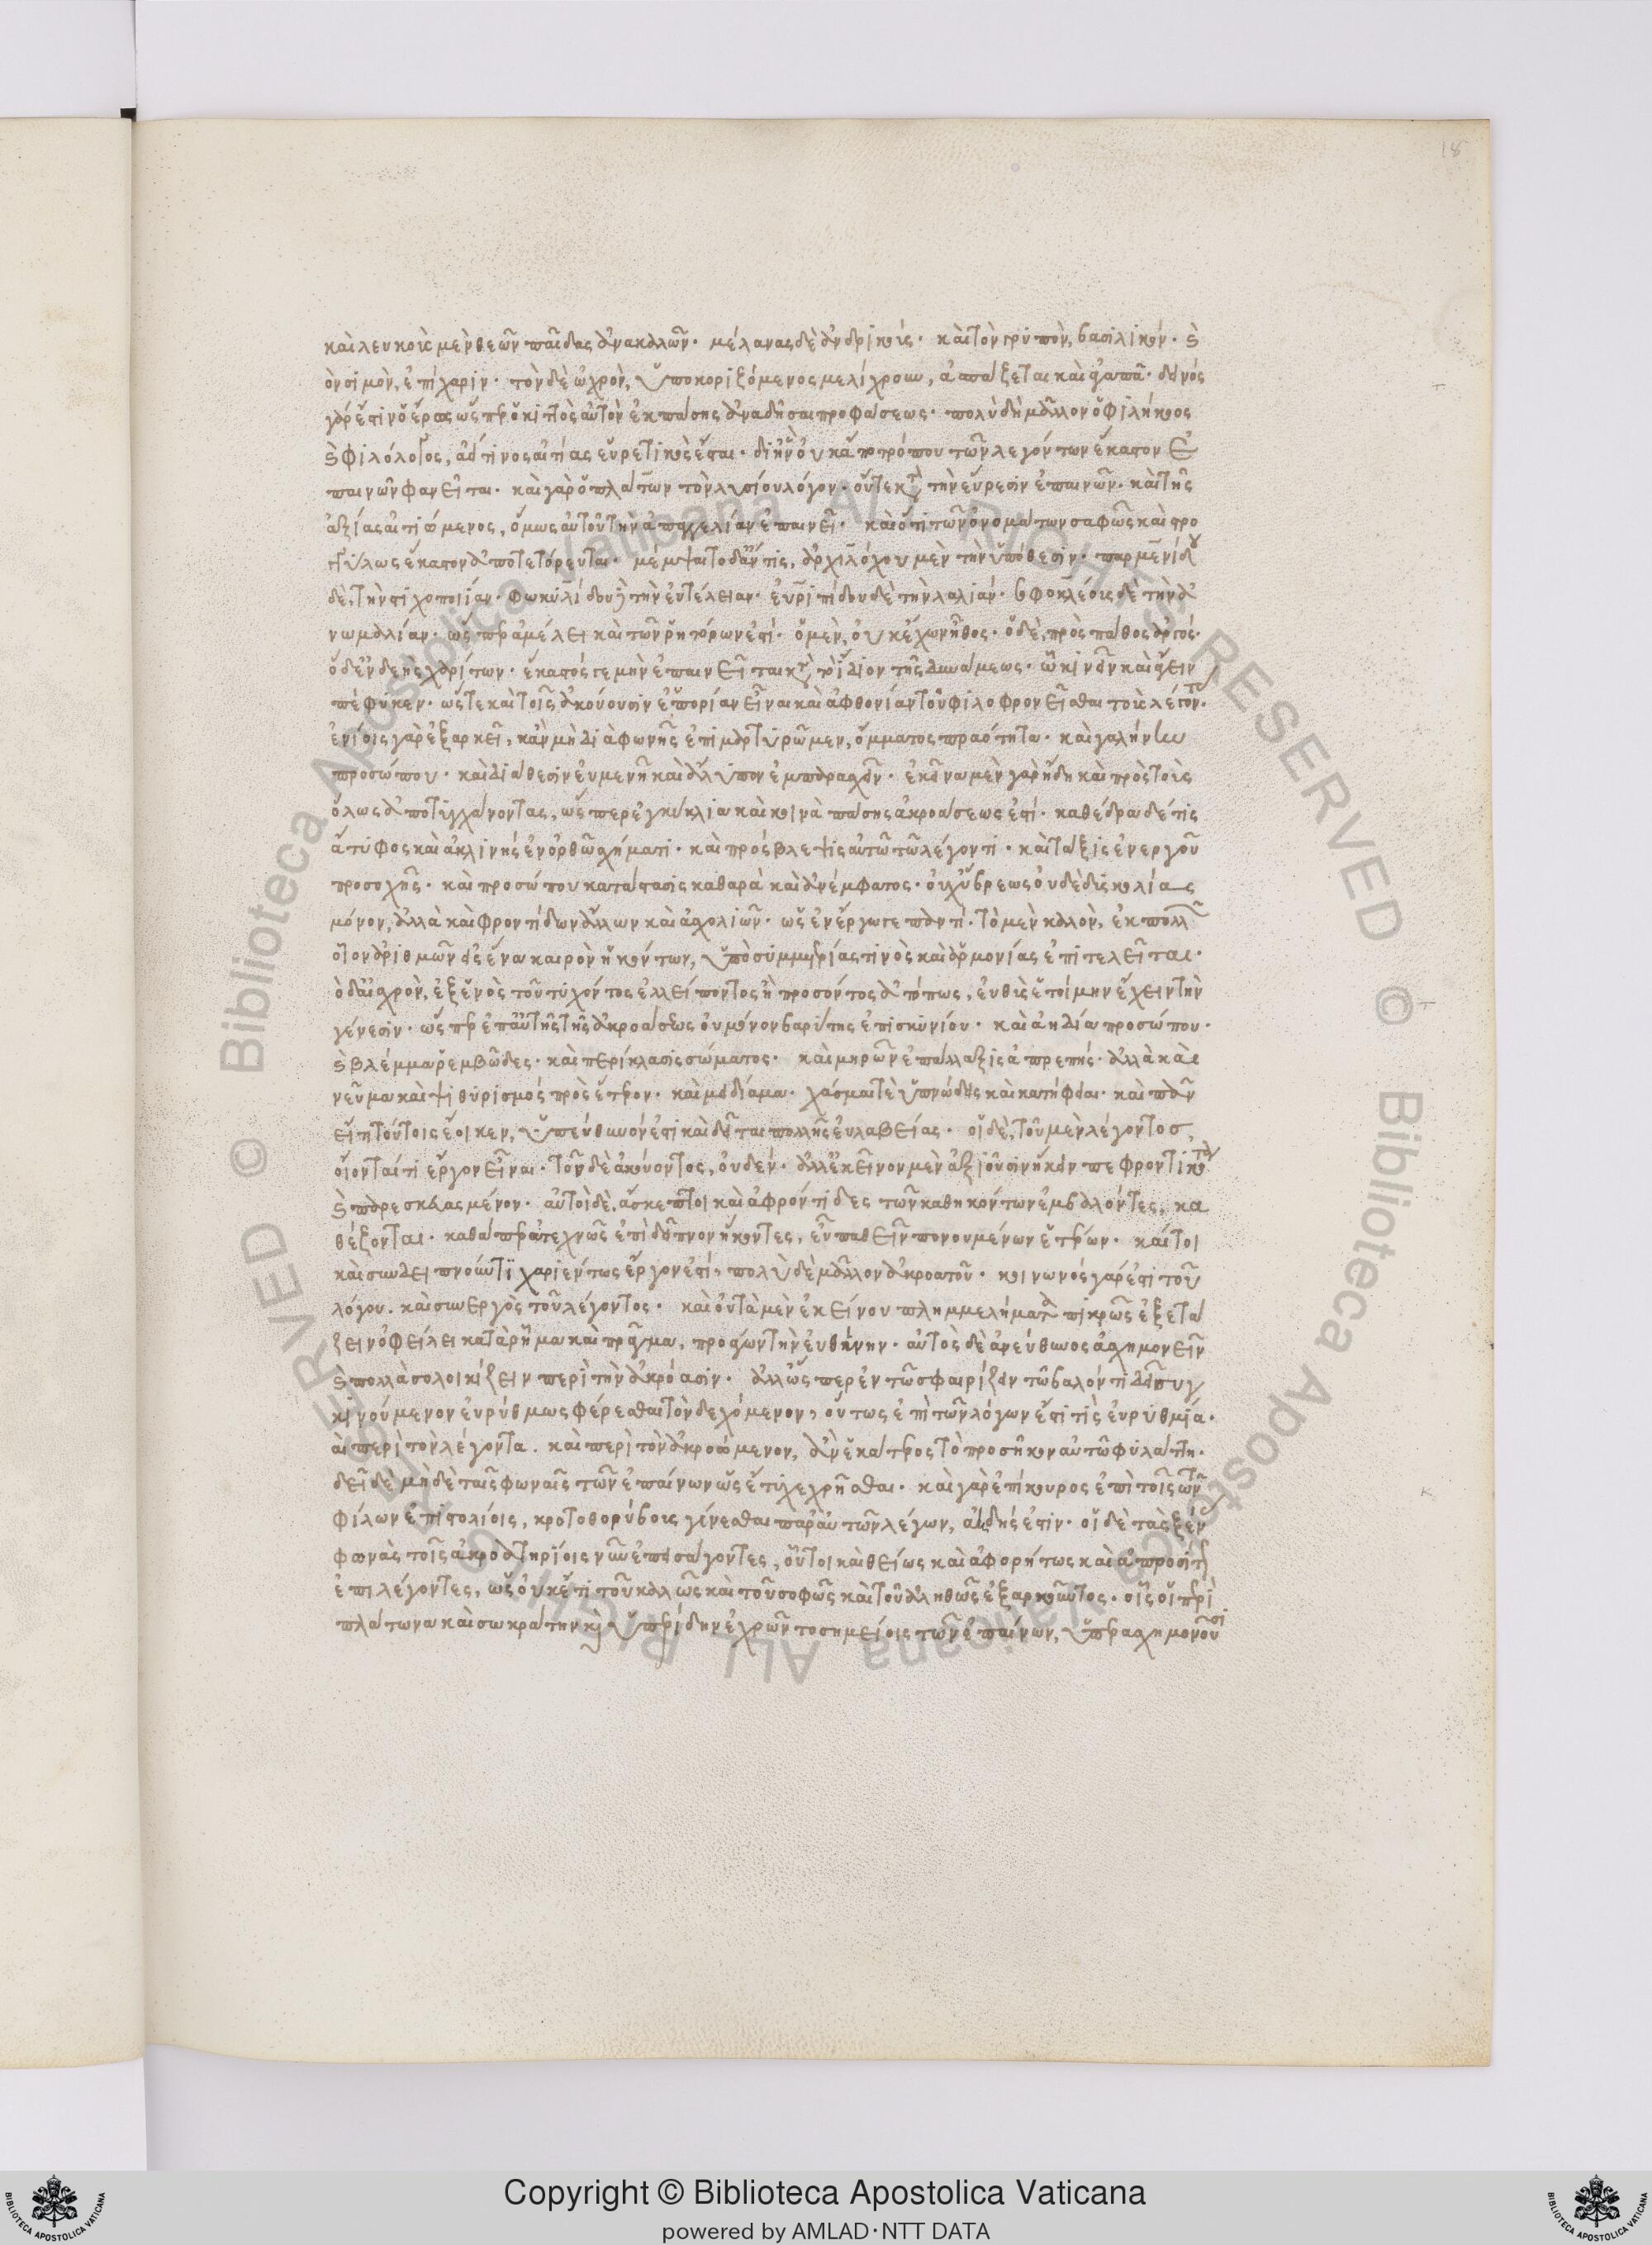 18
καὶ λευκοὺς μὲν θεῶν παῖδας ἀνακαλῶν· μέλανας δὲ ἀνδρικούς· καὶ τὸν γρυπὸν, βασιλικόν· καὶ
τὸν σιμὸν, ἐπίχαριν· τὸν δὲ ὠχρὸν, ὑποκοριζόμενος μελίχρουν, ἀσπάζεται καὶ ἀγαπᾷ· δεινὸς
γάρ ἐστιν ὁ ἔρως ὥσπερ ὁ κιττὸς αὑτὸν ἐκ πάσης ἀναδῆσαι προφάσεως· πολὺ δὴ μᾶλλον ὁ φιλήκοος
καὶ φιλόλογος, ἀεί τινος αἰτίας εὑρετικὸς ἔσται· δι' ἣν οὐκ ἄπο τρόπου τῶν λεγόντων ἕκαστον ἐ
παινῶν φανεῖται· καὶ γὰρ ὁ πλάτων τὸν λυσίου λόγον· οὔτε κατὰ τὴν εὕρεσιν ἐπαινῶν· καὶ τῆς
ἀταξίας αἰτιώμενος, ὅμως αὐτοῦ τὴν ἀπαγγελίαν ἐπαινεῖ· καὶ ὅτι τῶν ὀνομάτων σαφῶς καὶ στρο
γγύλως ἕκαστον ἀποτετόρευται· μέμψαιτο δ' ἄν τις, ἀρχιλόχου μὲν τὴν ὑπόθεσιν· παρμενίδου
δὲ, τὴν στιχοποιίαν· φωκυλίδου δὲ τὴν εὐτέλειαν· εὐριπίδου δὲ τὴν λαλιάν· σοφοκλέους δὲ τὴν ἀ
νωμαλίαν· ὥσπερ ἀμέλει καὶ τῶν ῥητόρων ἐστὶ· ὁ μὲν, οὐκ ἔχων ἦθος· ὁ δὲ, πρὸς πάθος ἀργός·
ὁ δ' ἐνδεὴς χαρίτων· ἕκαστός γε μὴν ἐπαινεῖται κατὰ τὸ ἴδιον τῆς δυνάμεως· ᾧ κινεῖν καὶ ἄγειν
πέφυκεν· ὥστε καὶ τοῖς ἀκούουσιν εὐπορίαν εἶναι καὶ ἀφθονίαν τοῦ φιλοφρονεῖσθαι τοὺς λέγοντας·
ἐνίοις γὰρ ἐξαρκεῖ, κἂν μὴ διὰ φωνῆς ἐπιμαρτυρῶμεν, ὄμματος πραότητα· καὶ γαλήνην
προσώπου· καὶ διάθεσιν εὐμενῆ καὶ ἄλυπον ἐμπαρασχεῖν· ἐκεῖνα μὲν γὰρ ἤδη καὶ πρὸς τοὺς
ὅλως ἀποτυγχάνοντας, ὥσπερ ἐγκύκλια καὶ κοινὰ πάσης ἀκροάσεως ἐστί· καθέδρα δέ τις
ἄτυφος καὶ ἀκλινὴς ἐν ὀρθῷ σχήματι· καὶ πρόσβλεψις αὐτῷ τῷ λέγοντι· καὶ τάξις ἐνεργοῦ
προσοχῆς· καὶ προσώπου κατάστασις καθαρὰ καὶ ἀνέμφατος· οὐχ ὕβρεως οὐδὲ δυσκολίας
μόνον, ἀλλὰ καὶ φροντίδων ἄλλων καὶ ἀσχολιῶν· ὡς ἐν ἔργῳ γε παντί· τὸ μὲν καλὸν, ἐκ πολλῶν
οἷον ἀριθμῶν εἰς ἕνα καιρὸν ἡκόντων, ὑπὸ συμμετρίας τινὸς καὶ ἁρμονίας ἐπιτελεῖται·
τὸ δ' αἰσχρὸν, ἐξ ἑνὸς τοῦ τυχόντος ἐλλείποντος ἢ προσόντος ἀτόπως, εὐθὺς ἑτοίμην ἔχειν τὴν
γένεσιν· ὥσπερ ἐπ' αὐτῆς τῆς ἀκροάσεως οὐ μόνον βαρύτης ἐπισκυνίου· καὶ ἀηδία προσώπου·
καὶ βλέμμα ῥεμβῶδες· καὶ περίκλασις σώματος· καὶ μηρῶν ἐπάλλαξις ἀπρεπής· ἀλλὰ καὶ
νεῦμα καὶ ψιθυρισμὸς πρὸς ἕτερον· καὶ μειδίαμα· χάσμαι τε ὑπνώδεις καὶ κατήφειαι· καὶ πᾶν
εἴ τι τούτοις ἔοικεν, ὑπεύθυνόν ἐστι καὶ δεῖται πολλῆς εὐλαβείας· οἱ δὲ, τοῦ μὲν λέγοντος,
οἴονταί τι ἔργον εἶναι· τοῦ δὲ ἀκούοντος, οὐδέν· ἀλλ' ἐκεῖνον μὲν ἀξιοῦσιν ἥκειν πεφροντικότα
καὶ παρεσκευασμένον· αὐτοὶ δὲ, ἄσκεπτοι καὶ ἀφρόντιδες τῶν καθηκόντων ἐμβαλόντες, κα
θέζονται· καθάπερ ἀτεχνῶς ἐπὶ δεῖπνον ἥκοντες, εὖ παθεῖν πονουμένων ἑτέρων· καίτοι
καὶ συνδειπνοῦντί τι χαρίεντος ἔργον ἐστί, πολὺ δὲ μᾶλλον ἀκροατοῦ· κοινωνὸς γάρ ἐστι τοῦ
λόγου. καὶ συνεργὸς τοῦ λέγοντος· καὶ οὐ τὰ μὲν ἐκείνου πλημμελήματα πικρῶς ἐξετά
ζειν ὀφείλει κατὰ ῥῆμα καὶ πρᾶγμα, προσάγων τὴν εὐθύνην· αὐτὸς δὲ ἀνεύθυνος ἀσχημονεῖν
καὶ πολλὰ σολοικίζειν περὶ τὴν ἀκρόασιν· ἀλλ' ὥσπερ ἐν τῷ σφαιρίζειν τῷ βαλόντι δεῖ συγ
κινούμενον εὐρύθμως φέρεσθαι τὸν δεχόμενον, οὕτως ἐπὶ τῶν λόγων ἐστί τις εὐρυθμία·
καὶ περὶ τὸν λέγοντα. καὶ περὶ τὸν ἀκροώμενον, ἂν ἑκάτερος τὸ προσῆκον αὑτῷ φυλάττῃ·
δεῖ δὲ μὴ δὲ ταῖς φωναῖς τῶν ἐπαίνων ὡς ἔτυχε χρῆσθαι· καὶ γὰρ ἐπίκουρος ἐπὶ τοῖς τῶν
φίλων ἐπιστολίοις, κροτοθορύβους γίνεσθαι παρ' αὐτῶν λέγων, ἀηδής ἐστιν· οἱ δὲ τὰς ξένας
φωνὰς τοῖς ἀκροατηρίοις νῦν ἐπεισάγοντες, οὗτοι καὶ θείως καὶ ἀφορήτως καὶ ἀπροσίτως
ἐπιλέγοντες, ὡς οὐκέτι τοῦ καλῶς καὶ τοῦ σοφῶς καὶ τοῦ ἀληθῶς ἐξαρκοῦντος· οἷς οἱ περὶ
πλάτωνα καὶ σωκράτην καὶ ὑπερίδην ἐχρῶντο σημείοις τῶν ἐπαίνων, ὑπερασχημονοῦσι
© Biblioteca Apostolica Vaticana ALL RIGHTS RESERVED
© Biblioteca Apostolica Vaticana ALL RIGHTS RESERVED
Copyright © Biblioteca Apostolica Vaticana
powered by AMLAD·NTT DATA
BIBLIOTECA APOSTOLICA VATICANA
BIBLIOTECA APOSTOLICA VATICANA